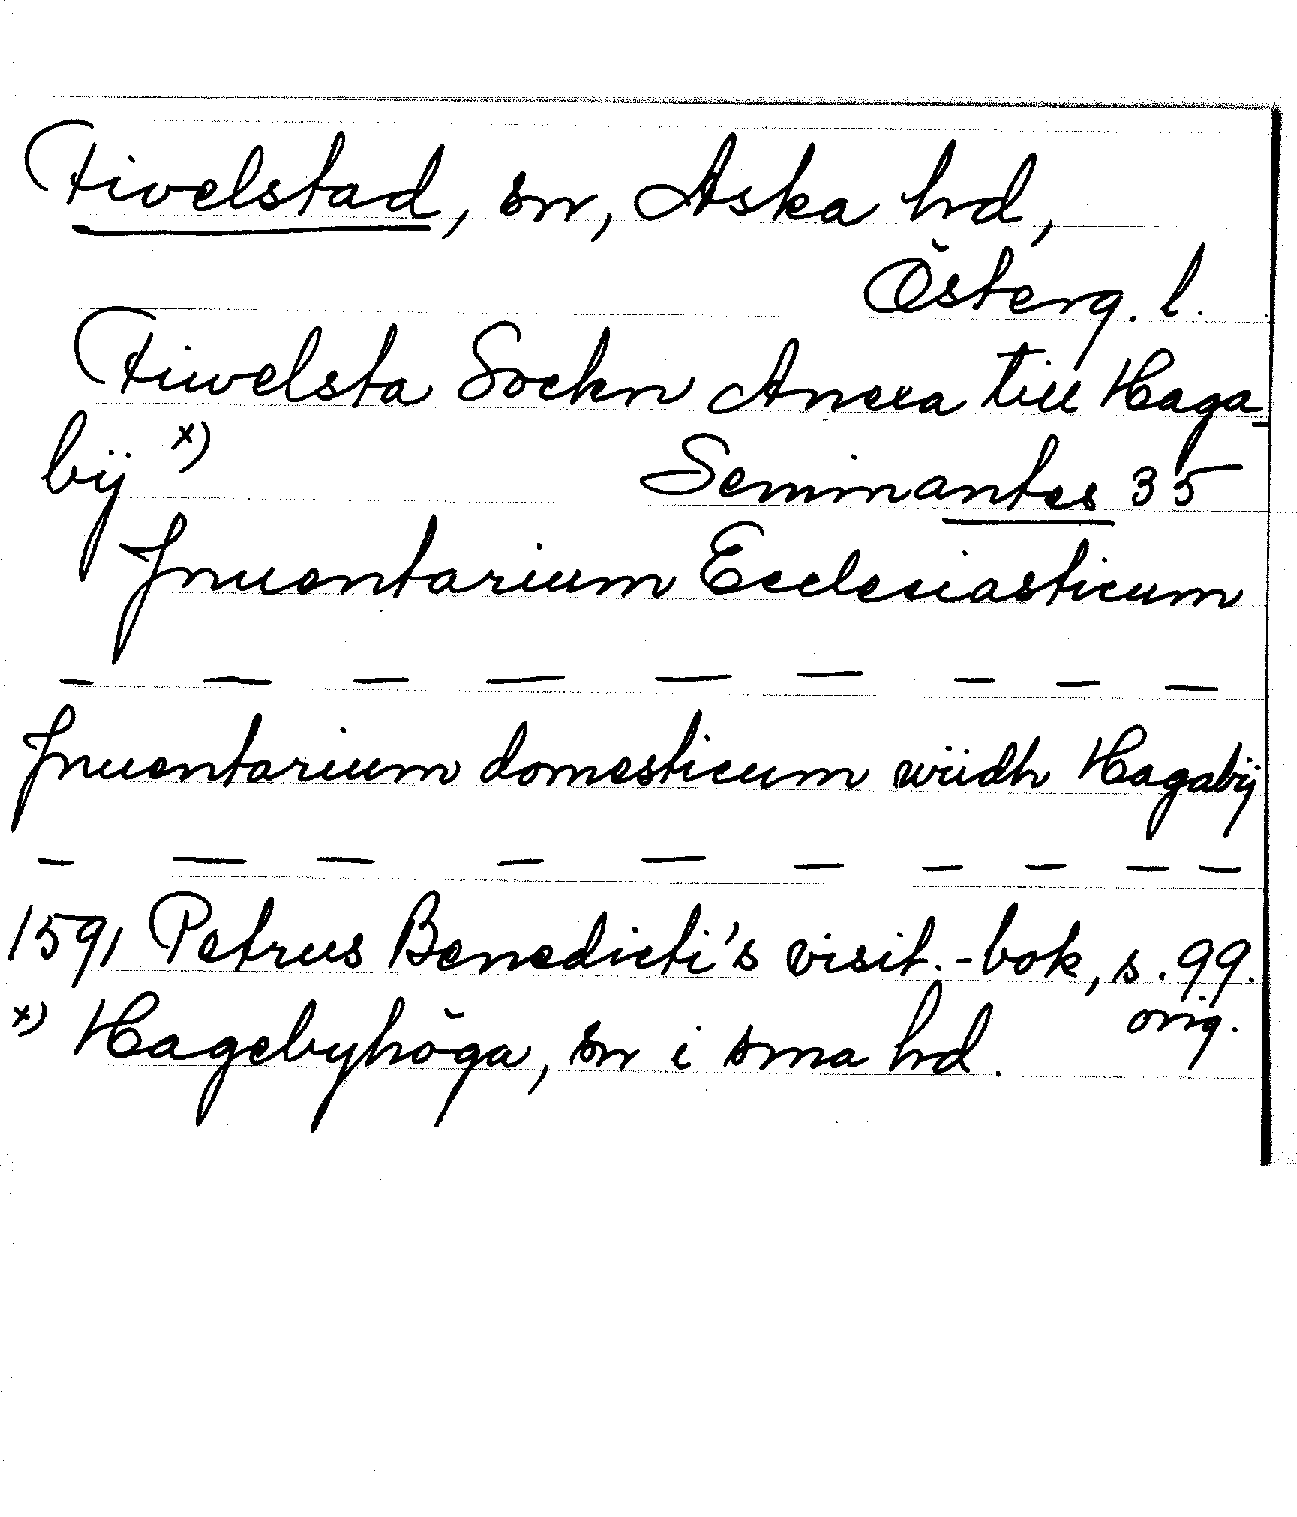 Fivelstad, sn, Aska hd,
Österg. l.
Fiwelsta Sockn Anexa till Haga-
bÿ x) Seminantes 35
Jnuentarium Ecclesiasticum
— — — — — — — — —
Jnuentarium domesticum wiidh Hagabÿ
— — — — — — — — — —
1591 Petrus Benedicti's visit.-bok, s. 99.
orig.
x) Hagebyhöga, sn i sma hd.